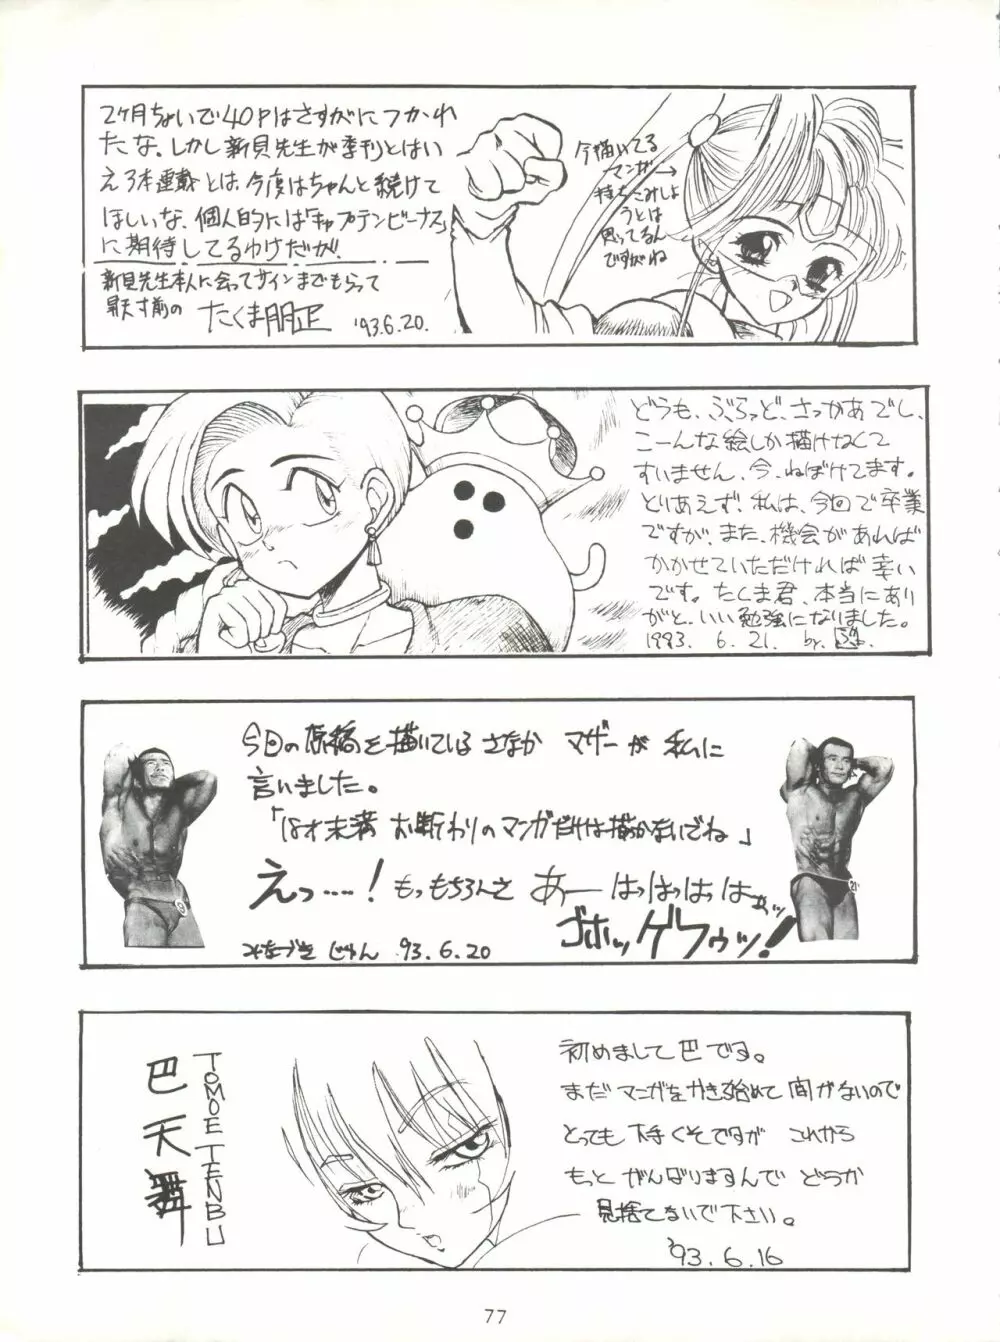 2ヶ月ちょいで40Pはさすがにつかれ
たな。しかし新貝先生が季刊とはい
え3本連載とは、今度はちゃんと続けて
ほしいな、個人的には「キャプテンビーナス」
に期待してるわけだが、
新貝先生本人に会ってサインまでもらって
昇天寸前の たくま朋正 '93.6.20.
今描いてる
マンガ→
持ちこみしよ
うとは
思ってるん
ですがね
どうも、ぶらっど、さっかあでし、
こーんな絵しか描けなくて
すいません、今、ねぼけてます。
とりあえず、私は、今回で卒業
ですが、また、機会があれば
かかせていただければ幸い
です。たくま君、本当にあり
がと、いい勉強になりました。
1993. 6. 21. by.
今回の原稿を描いているさなか マザーが 私に
言いました。
「18才未満 お断わりのマンガだけは描かないでね」
えっ……! もっもちろんさ あーはっはっはっはァッ
ゴホッゲフゥッ!
みなづき じゅん 93.6.20
巴天舞
TOMOE TENBU
初めまして巴です。
まだマンガをかき始めて間がないので
とっても下手くそですが これから
もっと がんばりますんで どうか
見捨てないで下さい。
'93.6.16
77